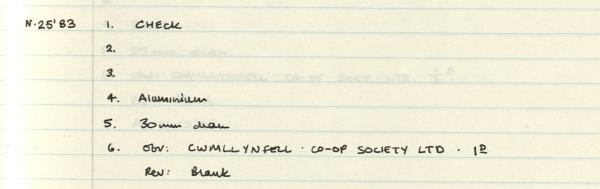 N.25'83 1. CHECK
2.
3.
4. Aluminium
5. 30mm diam
6. OBV: CWMLLYNFELL · CO-OP SOCIETY LTD · 1D
Rev: Blank